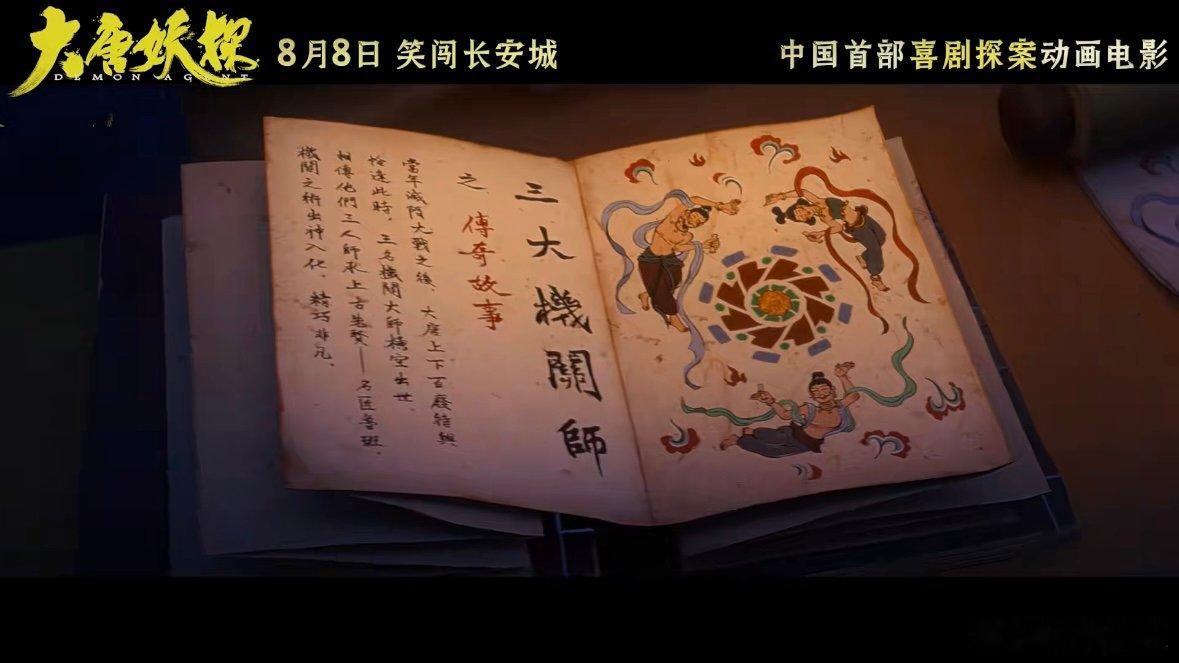 大唐妖探
DEMON AGENT
8月8日 笑闯长安城
中国首部喜剧探案动画电影
三大機關師
之 傳奇故事
當年滅門大戰之後，大唐上下百廢待興
恰逢此時，三名機關大師橫空出世
相傳他們三人師承上古鬼獒——名匠魯班，
機關之術出神入化，精巧非凡。